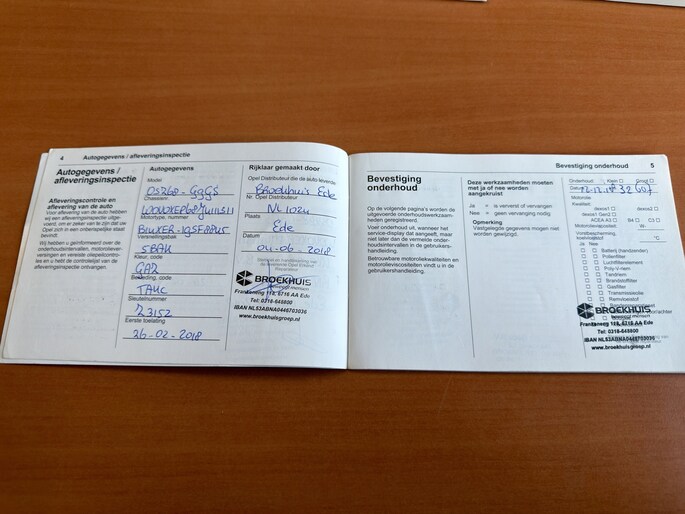 4 Autogegevens / afleveringsinspectie
Autogegevens /
afleveringsinspectie
Afleveringscontrole en
aflevering van de auto
Voor aflevering van de auto hebben
wij een afleveringsinspectie uitge-
voerd, om er zeker van te zijn dat uw
Opel zich in een onberispelijke staat
bevindt.
Wij hebben u geïnformeerd over de
onderhoudsintervallen, motorolie-
versingen en vereiste oliepeilcontro-
les en u hebt de controlelijst van de
afleveringsinspectie ontvangen.
Autogegevens
Model
Chassisnr.
Motortype, nummer
Versnellingsbak
5BAK
Kleur, code
GAZ
Bekleding, code
Sleutelnummer
Z3152
Eerste toelating
26-02-2018
Rijklaar gemaakt door
Opel Distributeur die de auto leverde
Broekhuis Ede
Nr. Opel Distributeur
Plaats
Ede
Datum
04-06-2018
BROEKHUIS
Frankeneng 118, 6716 AA Ede
Tel: 0318-648800
IBAN NL53ABNA0448703036
www.broekhuisgroep.nl
Bevestiging onderhoud 5
Bevestiging
onderhoud
Op de volgende pagina's worden de
uitgevoerde onderhoudswerkzaam-
heden geregistreerd.
Voer onderhoud uit, wanneer het
service-display dat aangeeft, maar
niet later dan de vermelde onder-
houdsintervallen in de gebruikers-
handleiding.
Betrouwbare motoroliekwaliteiten en
motorolieviscositeiten vindt u in de
gebruikershandleiding.
Deze werkzaamheden moeten
met ja of nee worden
aangekruist
Ja = is vereist of vervangen
Nee = geen vervanging nodig
Opmerking
Vastgelegde gegevens mogen niet
worden gewijzigd.
Onderhoud: Klein Groot
Datum
Motorolie
Kwaliteit
dexos1 dexos2
dexos1 Gen2
ACEA A3 B4 C3
Motorolieviscositeit W-
Vorstbescherming,
koelvloeistof °C
Ja Nee
Batterij (handzender)
Pollenfilter
Luchtfilterelement
Poly-V-riem
Tandriem
Brandstoffilter
Gasfilter
Transmissieolie
Remvloeistof
BROEKHUIS
Frankeneng 118, 6716 AA Ede
Tel: 0318-648800
IBAN NL53ABNA0448703036
www.broekhuisgroep.nl